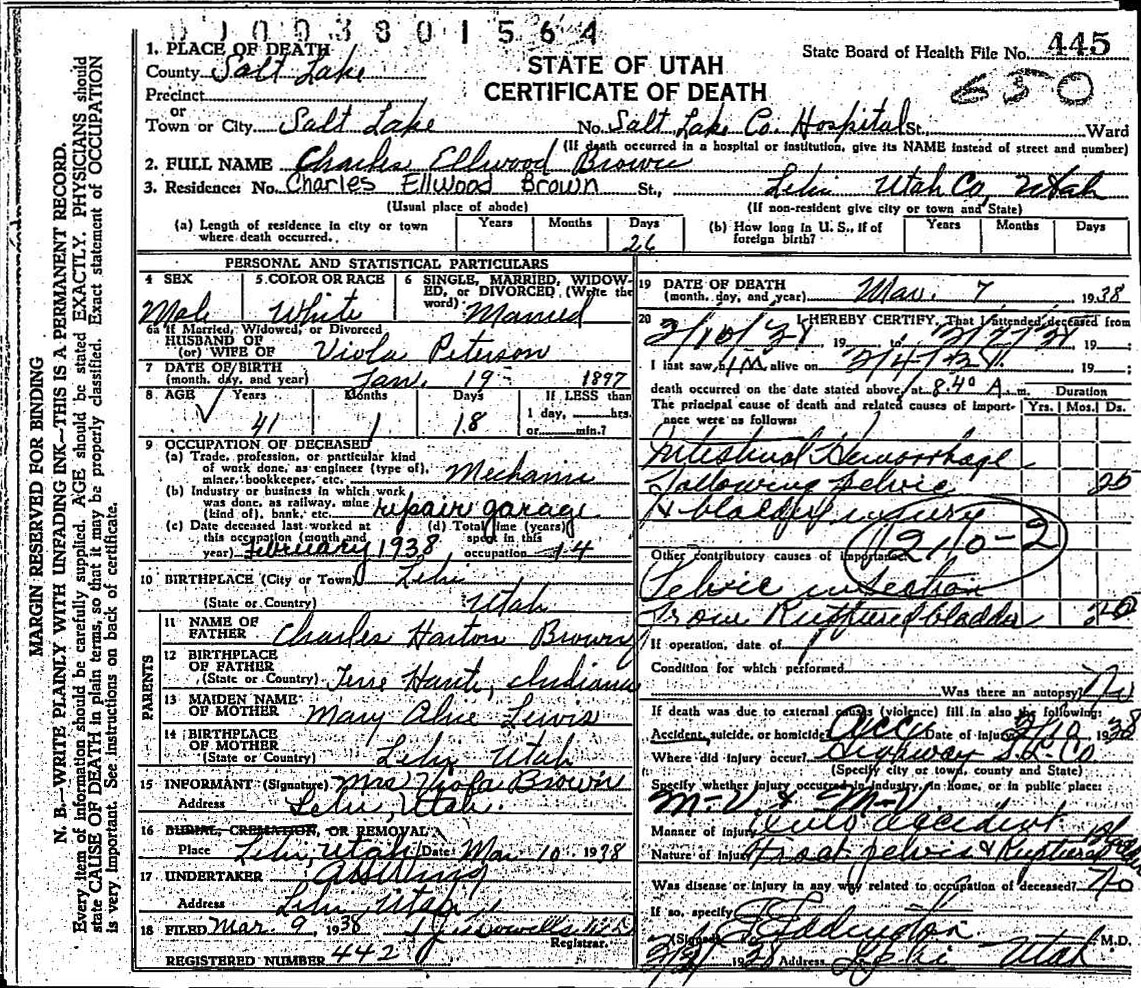 01003801564
1. PLACE OF DEATH
County Salt Lake
State Board of Health File No. 445
STATE OF UTAH
CERTIFICATE OF DEATH
650
Precinct
or
Town or City Salt Lake No. Salt Lake Co. Hospital St., Ward
(If death occurred in a hospital or institution, give its NAME instead of street and number)
2. FULL NAME Charles Ellwood Brown
3. Residence: No. Charles Ellwood Brown St., Lehi Utah Co, Utah
(Usual place of abode) (If non-resident give city or town and State)
(a) Length of residence in city or town where death occurred.. Years Months Days 26
(b) How long in U. S., if of foreign birth? Years Months Days
MARGIN RESERVED FOR BINDING
N. B.—WRITE PLAINLY WITH UNFADING INK—THIS IS A PERMANENT RECORD.
Every item of information should be carefully supplied. AGE should be stated EXACTLY. PHYSICIANS should
state CAUSE OF DEATH in plain terms, so that it may be properly classified. Exact statement of OCCUPATION
is very important. See instructions on back of certificate.
PERSONAL AND STATISTICAL PARTICULARS
4 SEX Male
5 COLOR OR RACE White
6 SINGLE, MARRIED, WIDOWED, or DIVORCED (Write the word) Married
6a If Married, Widowed, or Divorced
HUSBAND OF
(or) WIFE OF Viola Peterson
7 DATE OF BIRTH
(month, day, and year) Jan. 19- 1897
8 AGE Years 41 Months 1 Days 18 If LESS than 1 day, hrs. or min.?
9 OCCUPATION OF DECEASED
(a) Trade, profession, or particular kind
of work done, as engineer (type of),
miner, bookkeeper, etc. Mechanic
(b) Industry or business in which work
was done, as railway, mine
(kind of), bank, etc. repair garage
(c) Date deceased last worked at
this occupation (month and
year) February 1938
(d) Total time (years)
spent in this
occupation 14
10 BIRTHPLACE (City or Town) Lehi
(State or Country) Utah
PARENTS
11 NAME OF
FATHER Charles Harton Brown
12 BIRTHPLACE
OF FATHER
(State or Country) Terre Haute, Indiana
13 MAIDEN NAME
OF MOTHER Mary Alice Lewis
14 BIRTHPLACE
OF MOTHER
(State or Country) Lehi, Utah
15 INFORMANT (Signature) Mrs Viola Brown
Address Lehi, Utah.
16 BURIAL, CREMATION, OR REMOVAL
Place Lehi, Utah Date Mar 10 1938
17 UNDERTAKER
Address Lehi Utah
18 FILED Mar. 9, 1938
Registrar.
REGISTERED NUMBER 442
19 DATE OF DEATH
(month, day, and year) Mar. 7, 1938
20 I HEREBY CERTIFY, That I attended deceased from
2/10/38 19 to 19 ;
I last saw him alive on 19 ;
death occurred on the date stated above, at 8.40 A. m. Duration
The principal cause of death and related causes of importance were as follows: Yrs. Mos. Ds.
Intestinal Hemorrhage
following pelvic 25
& bladder injury
210-2
Other contributory causes of importance:
Pelvic infection
from Ruptured bladder 20
If operation, date of
Condition for which performed
Was there an autopsy? No
If death was due to external causes (violence) fill in also the following:
Accident, suicide, or homicide? Acc Date of injury 2/10 1938
Where did injury occur? Highway S.L. Co.
(Specify city or town, county and State)
Specify whether injury occurred in industry, in home, or in public place:
M-V & M-V.
Manner of injury Auto accident
Nature of Injury Fract pelvis & Ruptured
Was disease or injury in any way related to occupation of deceased? No
If so, specify
(Signed) Eddington M.D.
1938 Address Lehi Utah